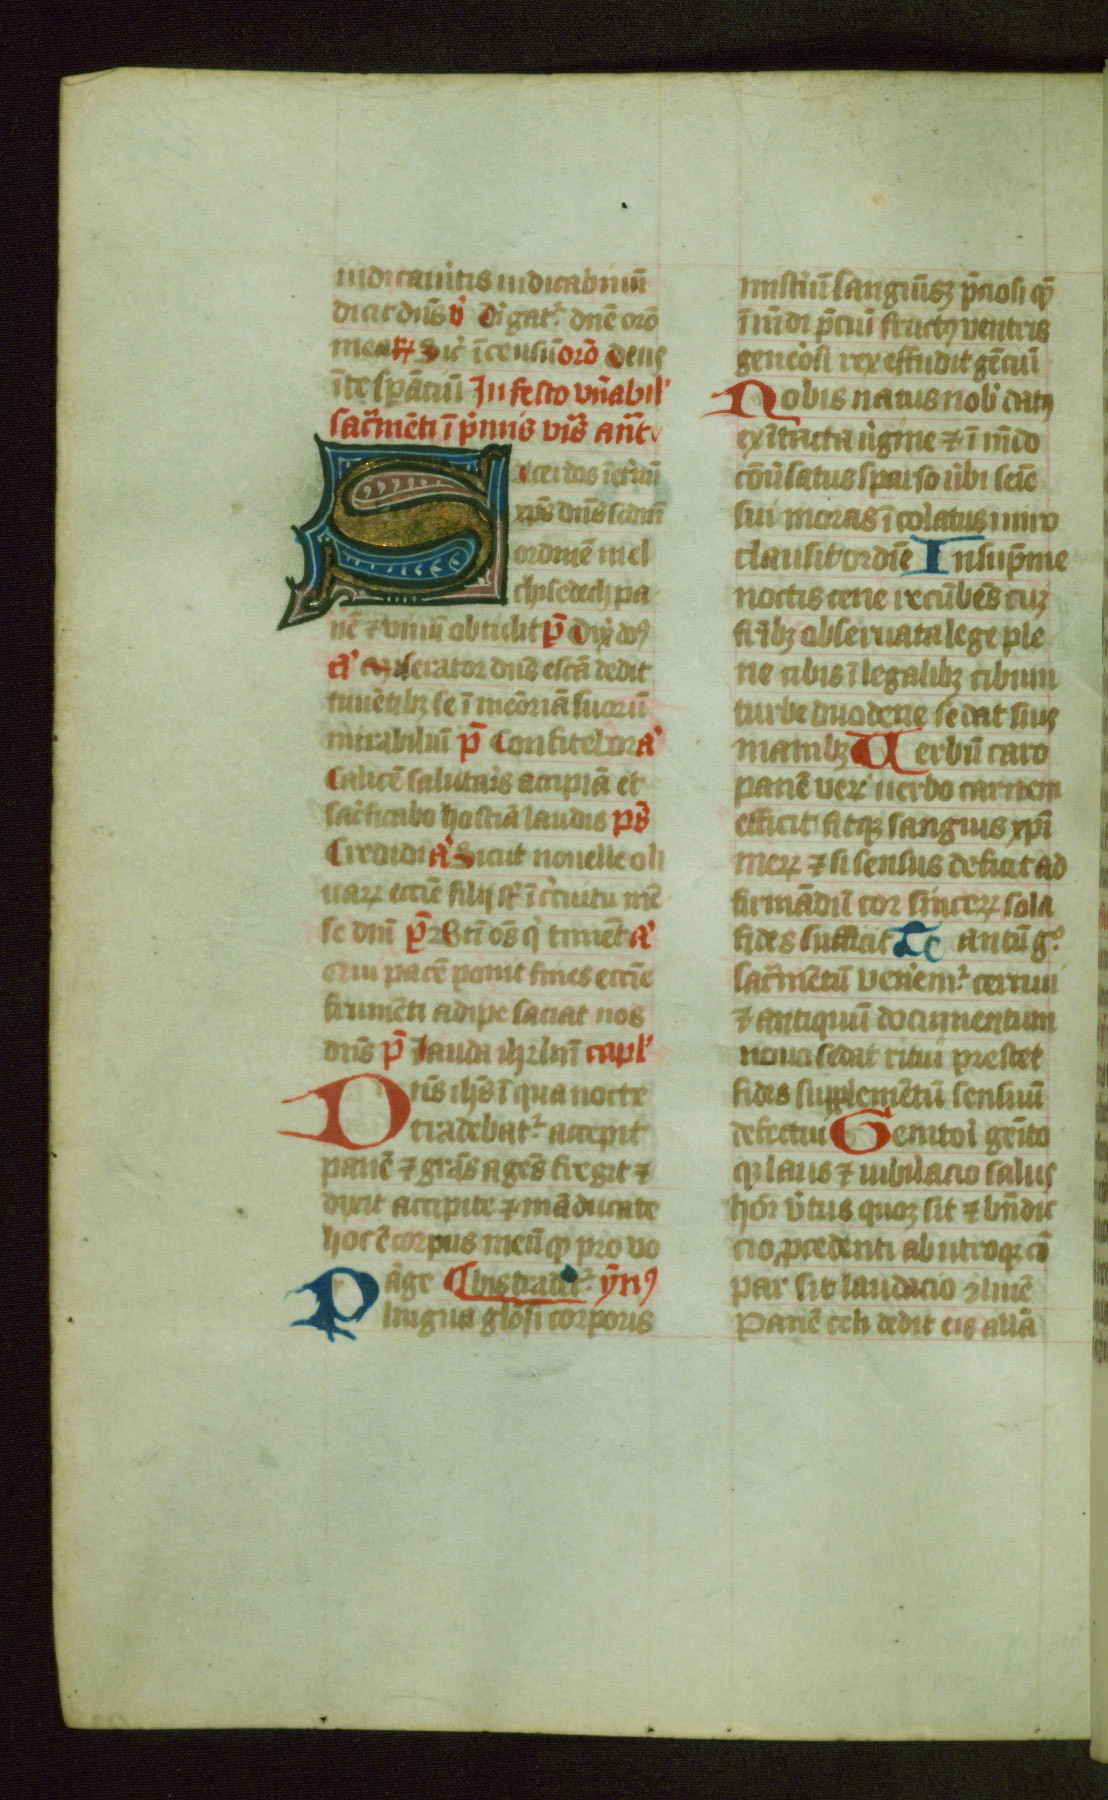 iudicaueritis iudicabimini
dicit dn̄s v̓ Dirigat᷑ dn̄e orō
mea ℟ Sic̄ īcensū orō Deus
ī te sꝑātiū In festo vn̄abil'
sac̄mēti ī p̓miis vis̄ ant̄
Sacerdos īet̓nū
xp̄s dn̄s scdm̄
ordinē mel
chisedech pa
nē ⁊ vinū obtulit p̄ Dix̓ dn̄s
a̓ Miserator dn̄s escā dedit
timētibꝫ se ī meōriā suorū
mirabiliū p̄ Confitebor a̓
Calicē salutar̓s accipiā et
sac̓ficabo hostiā laudis ps̄
Credidi a̓ Sicut nouelle oli
uarꝝ ecc̄ie filij st̄ ī c̓cuitu mē
se dn̄i p̄ Bt̄i oēs q̓ timēt a̓
Qui pacē ponit fines ecc̄ie
frumēti adipe saciat nos
dn̄s p̄ Lauda ihr̄lm̄ capl'
Dn̄s ih̄s ī qua nocte
tradebat᷑ accepit
panē ⁊ grās agēs fregit ⁊
dixit accipite ⁊ māducate
hoc ē corpus meū qꝫ pro vo
bis tradet᷑ ȳn9
Pāge
lingua glōsi corporis
mist̓iū sanguīsqꝫ p̄ciosi qꝫ
ī mūdi p̄ciū fruct9 ventris
gene̓osi rex effudit gēciū
Nobis natus nob̓ dat9
ex ītacta v̓gine ⁊ ī mūdo
cōu̓satus sparso v̓bi seīe
sui moras īcolatus miro
clausit ordīe In sup̄me
noctis cene recūbēs cuꝫ
fr̄ibꝫ obseruata lege ple
ne cibis ī legalibꝫ cibum
turbe duodene se dat suis
manibꝫ Uerbū caro
panē veꝝ uerbo carnem
efficit fitqꝫ sanguis xp̄i
meꝝ ⁊ si sensus deficit ad
firmādū cor sinceꝝ sola
fides sufficit Tantū g̊
sac̄mentū ven̓em᷑ cernui
⁊ antiquū documentum
nouo cedat ritui prestet
fides supplementū sensuū
defectui Genitori genīto
qꝫ laus ⁊ iubilacio salus
honor v̓tus quoqꝫ sit ⁊ bn̄dic
cio ꝓcedenti ab utroqꝫ cō
par sit laudacio amē
Panē celi dedit eis allā